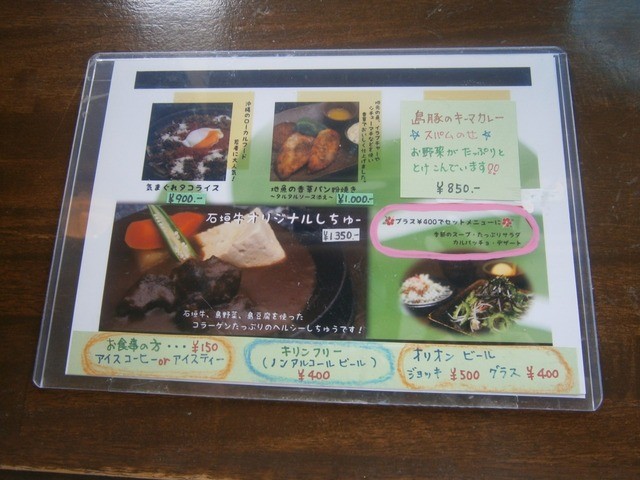 沖縄のローカルフード
若者に大人気!
気まぐれタコライス
¥900.-
地魚の香草パン粉焼き
〜タルタルソース添え〜
¥1,000.-
島豚のキーマカレー
お野菜がたっぷりと
とけこんでいます
¥850.-
石垣牛オリジナルしちゅー
¥1350.-
石垣牛、島野菜、島豆腐を使った
コラーゲンたっぷりのヘルシーしちゅうです!
プラス¥400でセットメニューに
季節のスープ・たっぷりサラダ
カルパッチョ・デザート
お食事の方・・・¥150
アイスコーヒーorアイスティー
キリンフリー
(ノンアルコールビール)
¥400
オリオンビール
ジョッキ ¥500 グラス ¥400